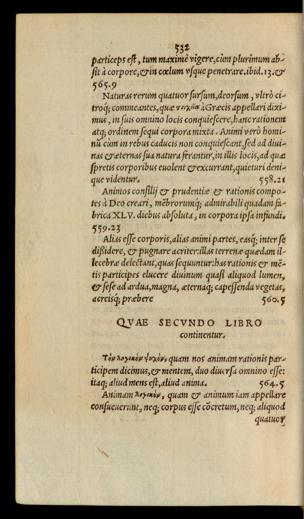 532
particeps est, tum maximè vigere, cùm plurimùm ab-
sit à corpore, & in cœlum vsque penetrare. ibid. 13. &
565.9
Naturas rerum quatuor sursum, deorsum, vltrò ci-
troq; commeantes, quæ à Græcis appellari dixi-
mus, in suis omnino locis conquiescere, hanc rationem
atq; ordinem sequi corpora mixta. Animi verò homi-
nū cùm in rebus caducis non conquiescant, sed ad diui-
nas & æternas sua natura ferantur, in illis locis, ad quæ
spretis corporibus euolent & excurrant, quieturi deni-
que videntur. 558.21
Animos consilij & prudentiæ & rationis compo-
tes à Deo creari, mēbrorumq; admirabili quadam fa-
brica XLV. diebus absoluta, in corpora ipsa infundi.
559.23
Alias esse corporis, alias animi partes, easq; inter se
dissidere, & pugnare acriter: illas terrenæ quædam il-
lecebræ delectant, quas sequuntur: has rationis & mē-
tis participes elucere diuinum quasi aliquod lumen,
& sese ad ardua, magna, æternaq; capessenda vegetas,
acreisq; præbere 560.5
QVAE SECVNDO LIBRO
continentur.
Τὴν λογικὴν ψυχὴν, quam nos animam rationis par-
ticipem dicimus, & mentem, duo diuersa omnino esse:
itaq; aliud mens est, aliud anima. 564.5
Animam λογικὴν, quam & animum iam appellare
consueuerunt, neq; corpus esse cōcretum, neq; aliquod
quatuor